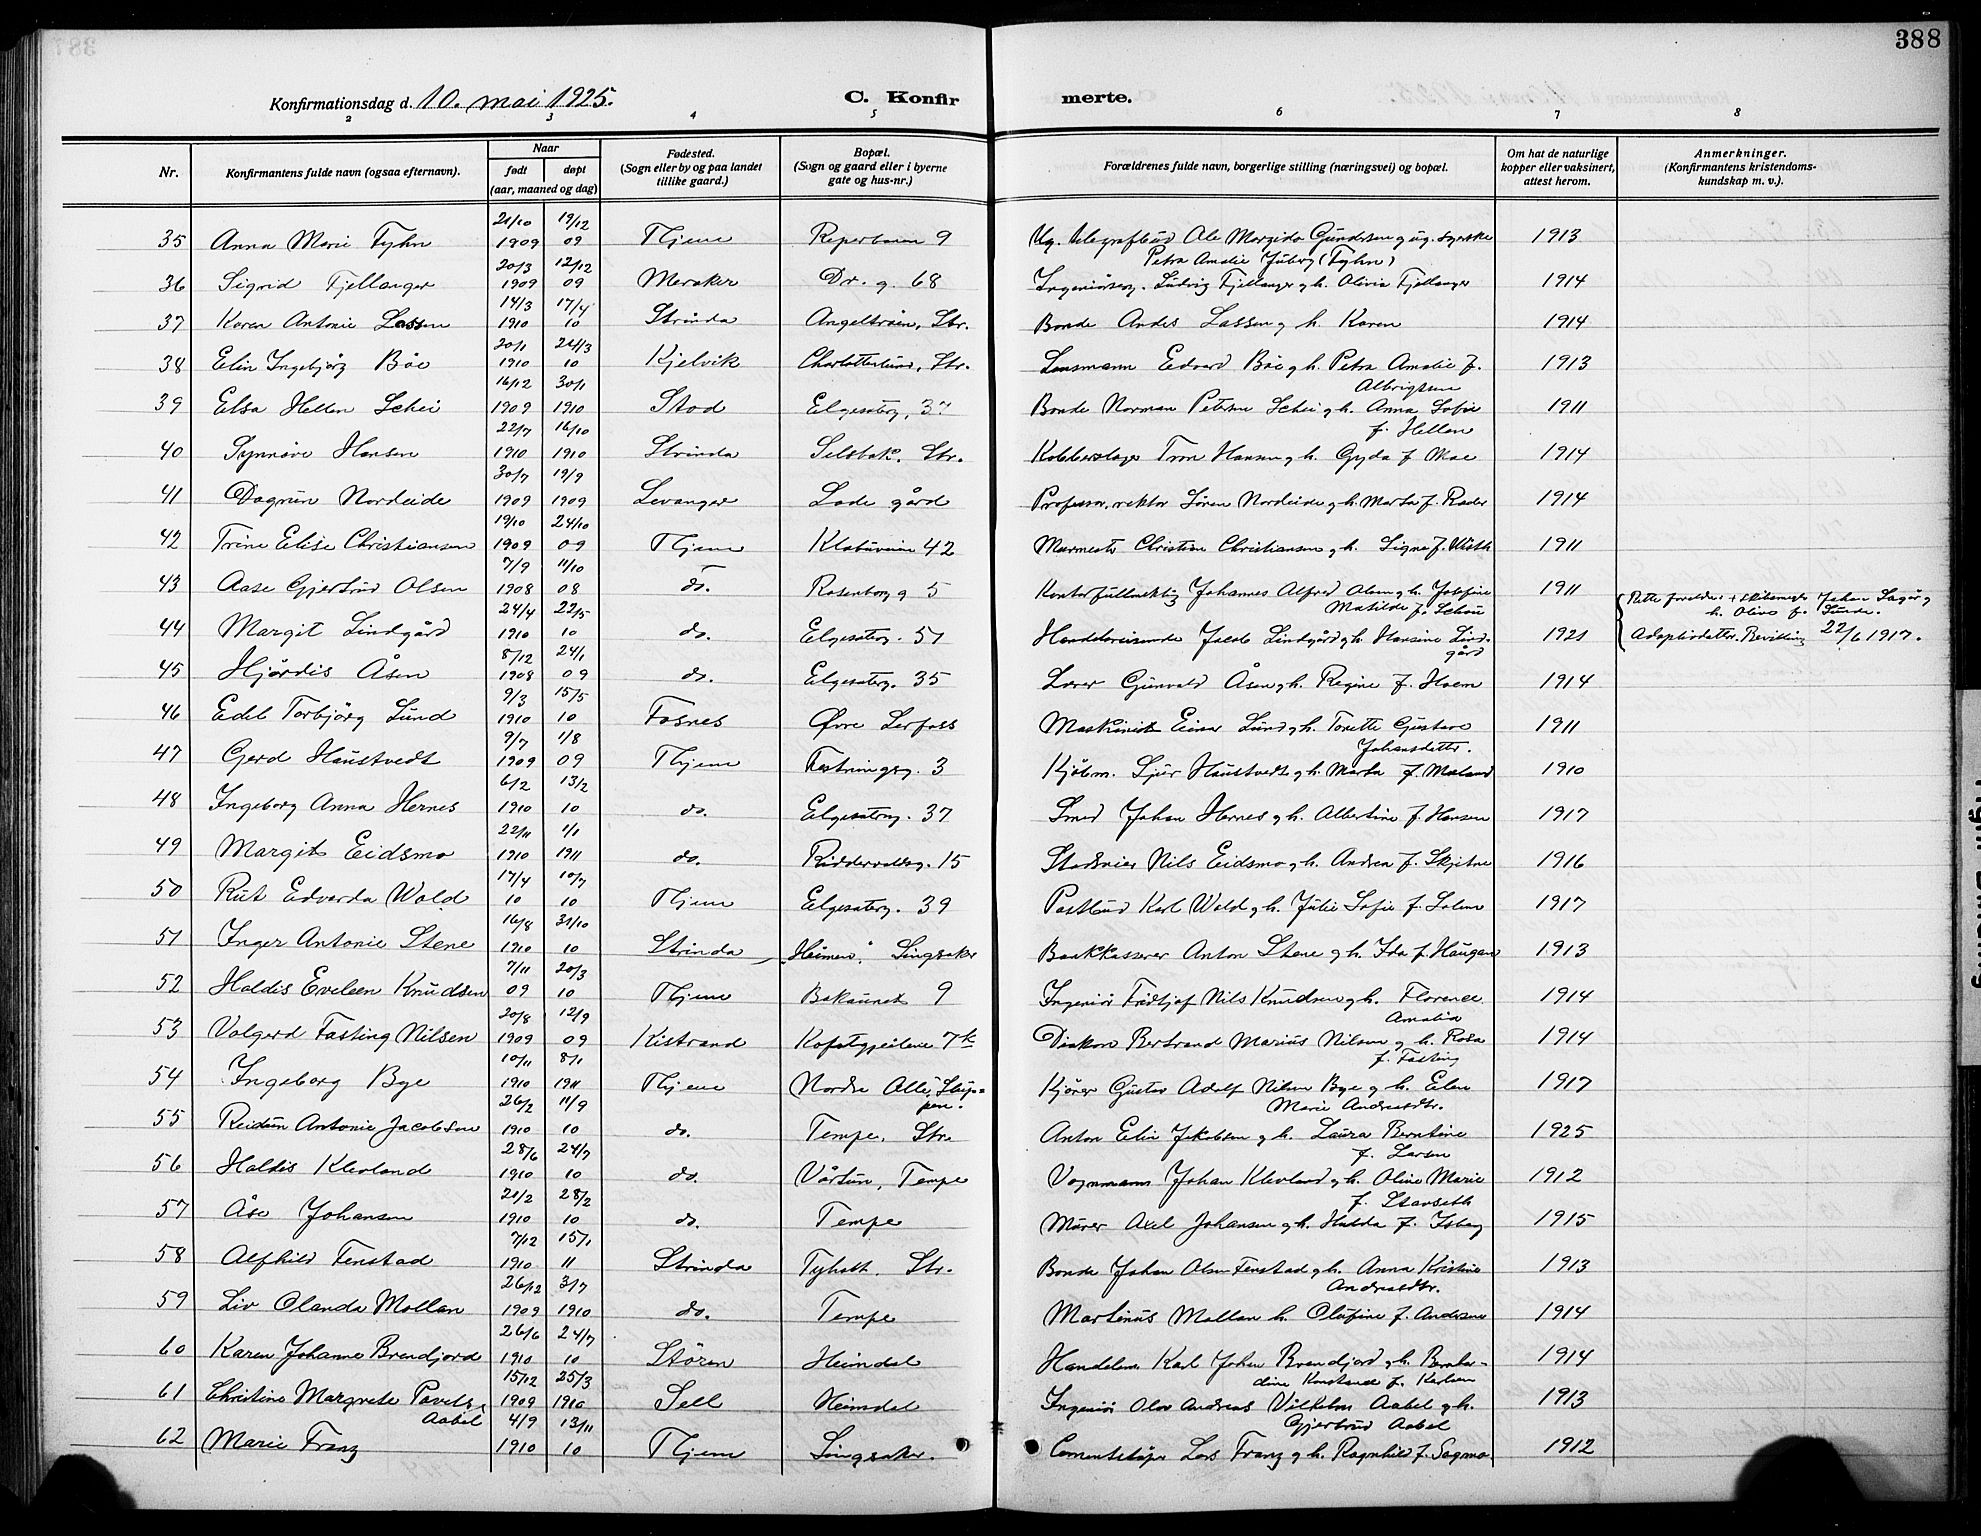 388
Konfirmationsdag d. 10. mai 1925. C. Konfir merte.
2 3 4 5 6 7 8
Nr. Konfirmantens fulde navn (ogsaa efternavn). Naar født døpt (aar, maaned og dag) Fødested. (Sogn eller by og paa landet tillike gaard.) Bopæl. (Sogn og gaard eller i byerne gate og hus-nr.) Forældrenes fulde navn, borgerlige stilling (næringsvei) og bopæl. Om hat de naturlige kopper eller vaksinert, attest herom. Anmerkninger. (Konfirmantens kristendoms-kundskap m. v.).
35 Anna Marie Fyhn 21/10 1909 19/12 09 Thjem 9 Ug. telegrafbud Ole Gundersen og ug. syerske Petra Amalie Juberg (Fyhn) 1913
36 Sigrid Fjellanger 20/3 1909 12/12 09 Meraker Dr. g. 68 Ludvig Fjellanger og h. Olivia Fjellanger 1914
37 Karen Antonie Lassen 14/3 1910 17/4 10 Strinda Angeltrøen, Str. Bonde Andes Lassen og h. Karen 1914
38 Elin Ingebjørg Böe 20/1 1910 24/3 10 Kjelvik Charlottenlund, Str. Lensmann Edvard Böe og h. Petra Amalie f. Albrigtsen 1913
39 Elsa Hellen Schei 16/12 1909 30/1 1910 Stod Elgesæterg. 37 Bonde Norman Petersen Schei og h. Anna Sofie f. Hellan 1911
40 Synnöve Hansen 22/7 1910 16/10 1910 Strinda Selsbak. Str. Kobberslager Tron Hansen og h. Gyda f. Moe 1914
41 Dagrun Nordeide 30/7 1909 19/9 1909 Levanger Lade gård Professor, rektor Sören Nordeide og h. Marta f. Rader 1914
42 Trine Elise Christiansen 19/10 1909 24/10 09 Thjem Klæbuveien 42 Murmester Christian Christiansen og h. Signe f. 1911
43 Aase Gjertrud Olsen 7/9 1908 11/10 08 do. Rosenborg g 5 Kontorfullmektig Johannes Alfred Olsen og h. Josefine Matilde f. Schou 1911
44 Margit Lindgård 24/4 1910 22/5 10 do. Elgesæterg. 51 Handelsreisende Jacob Lindgård og h. Hansine Lindgård 1921 Rette foreldre: Johan og h. Olivo f. Lunde. Adoptivdatter. Bevilling 22/6 1917.
45 Hjördis Åsen 8/12 1908 24/1 09 do. Elgesæterg. 35 Lærer Gunvald Åsen og h. Regine f. Hoem 1914
46 Edel Torbjörg Lund 9/3 1910 15/5 10 Fosnes Øvre Lerfoss Maskinist Einar Lund og h. Torette Gustava Johansdatter. 1911
47 Gerd Haustvedt 9/7 1909 1/8 09 Thjem Festningsg. 3 Kjöbm. Sjur Haustvedt og h. Marta f. Mæland 1910
48 Ingeborg Anna Hernes 6/2 1910 13/2 10 do. Elgesæterg. 37 Smed Johan Hernes og h. Albertine f. Hansen 1917
49 Margit Eidsmo 22/11 1910 1/1 1911 do. Riddervoldsg. 15 Nils Eidsmo og h. Andrea f. Skjetne 1916
50 Rut Edvarda Wold 17/4 10 10/7 10 Thjem Elgesæterg. 39 Postbud Karl Wold og h. Julie Sofie f. Solem 1917
51 Inger Antonie Stene 16/8 1910 31/10 10 Strinda „Heimen“, Singsaker Bankkasserer Anton Stene og h. Ida f. Haugan 1913
52 Haldis Eveleen Knudsen 7/11 09 20/3 10 Thjem Bakaunet 9 Ingeniör Fridtjof Nils Knudsen og h. Florence Amalia 1914
53 Valgerd Fasting Nilsen 20/8 1909 12/9 09 Kistrand 7k Diakon Bertrand Marius Nilsen og h. Rosa f. Fasting 1914
54 Ingeborg Bye 10/11 1910 8/1 1911 Thjem Nordre Alle, Steinpen. Kjörer Gustav Adolf Nilsen Bye og h. Elen Marie Andreasdtr. 1917
55 Reidun Antonie Jacobsen 26/2 1910 11/9 10 do. Tempe, Str. Anton Elin Jakobsen og h. Laura Berntine f. Larsen 1925
56 Haldis Klevland 28/6 1910 24/7 10 do. Vårtun, Tempe Vognmann Johan Klevland og h. Oline Marie f. Stavseth 1912
57 Åse Johansen 21/2 1910 28/2 10 do. Tempe Murer Axel Johansen og h. Hulda f. Isberg 1915
58 Alfhild Fenstad 7/12 1910 15/1 11 Strinda Tyholt, Str. Bonde Johan Olsen Fenstad og h. Anna Kristine Andreasdtr. 1913
59 Liv Olanda Mollan 26/12 1909 3/7 1910 do. Tempe Martinus Mollan h. Olufine f. Andersen 1914
60 Karen Johanne Brendjord 26/6 1910 24/7 10 Stören Heimdal Handelsm. Karl Johan Brendjord og h. Berntadine Konstanse f. Karlsen 1914
61 Christine Margrete Pavels Aabel 15/12 1909 25/3 1910 Sell Heimdal Ingeniör Olav Andreas Vilhelm Aabel og h. Gjertrud Aabel 1913
62 Marie Franz 4/9 1910 13/11 10 Thjem Singsaker. Cementstöper Lars Franz og h. Ragnhild f. Sagmo. 1912